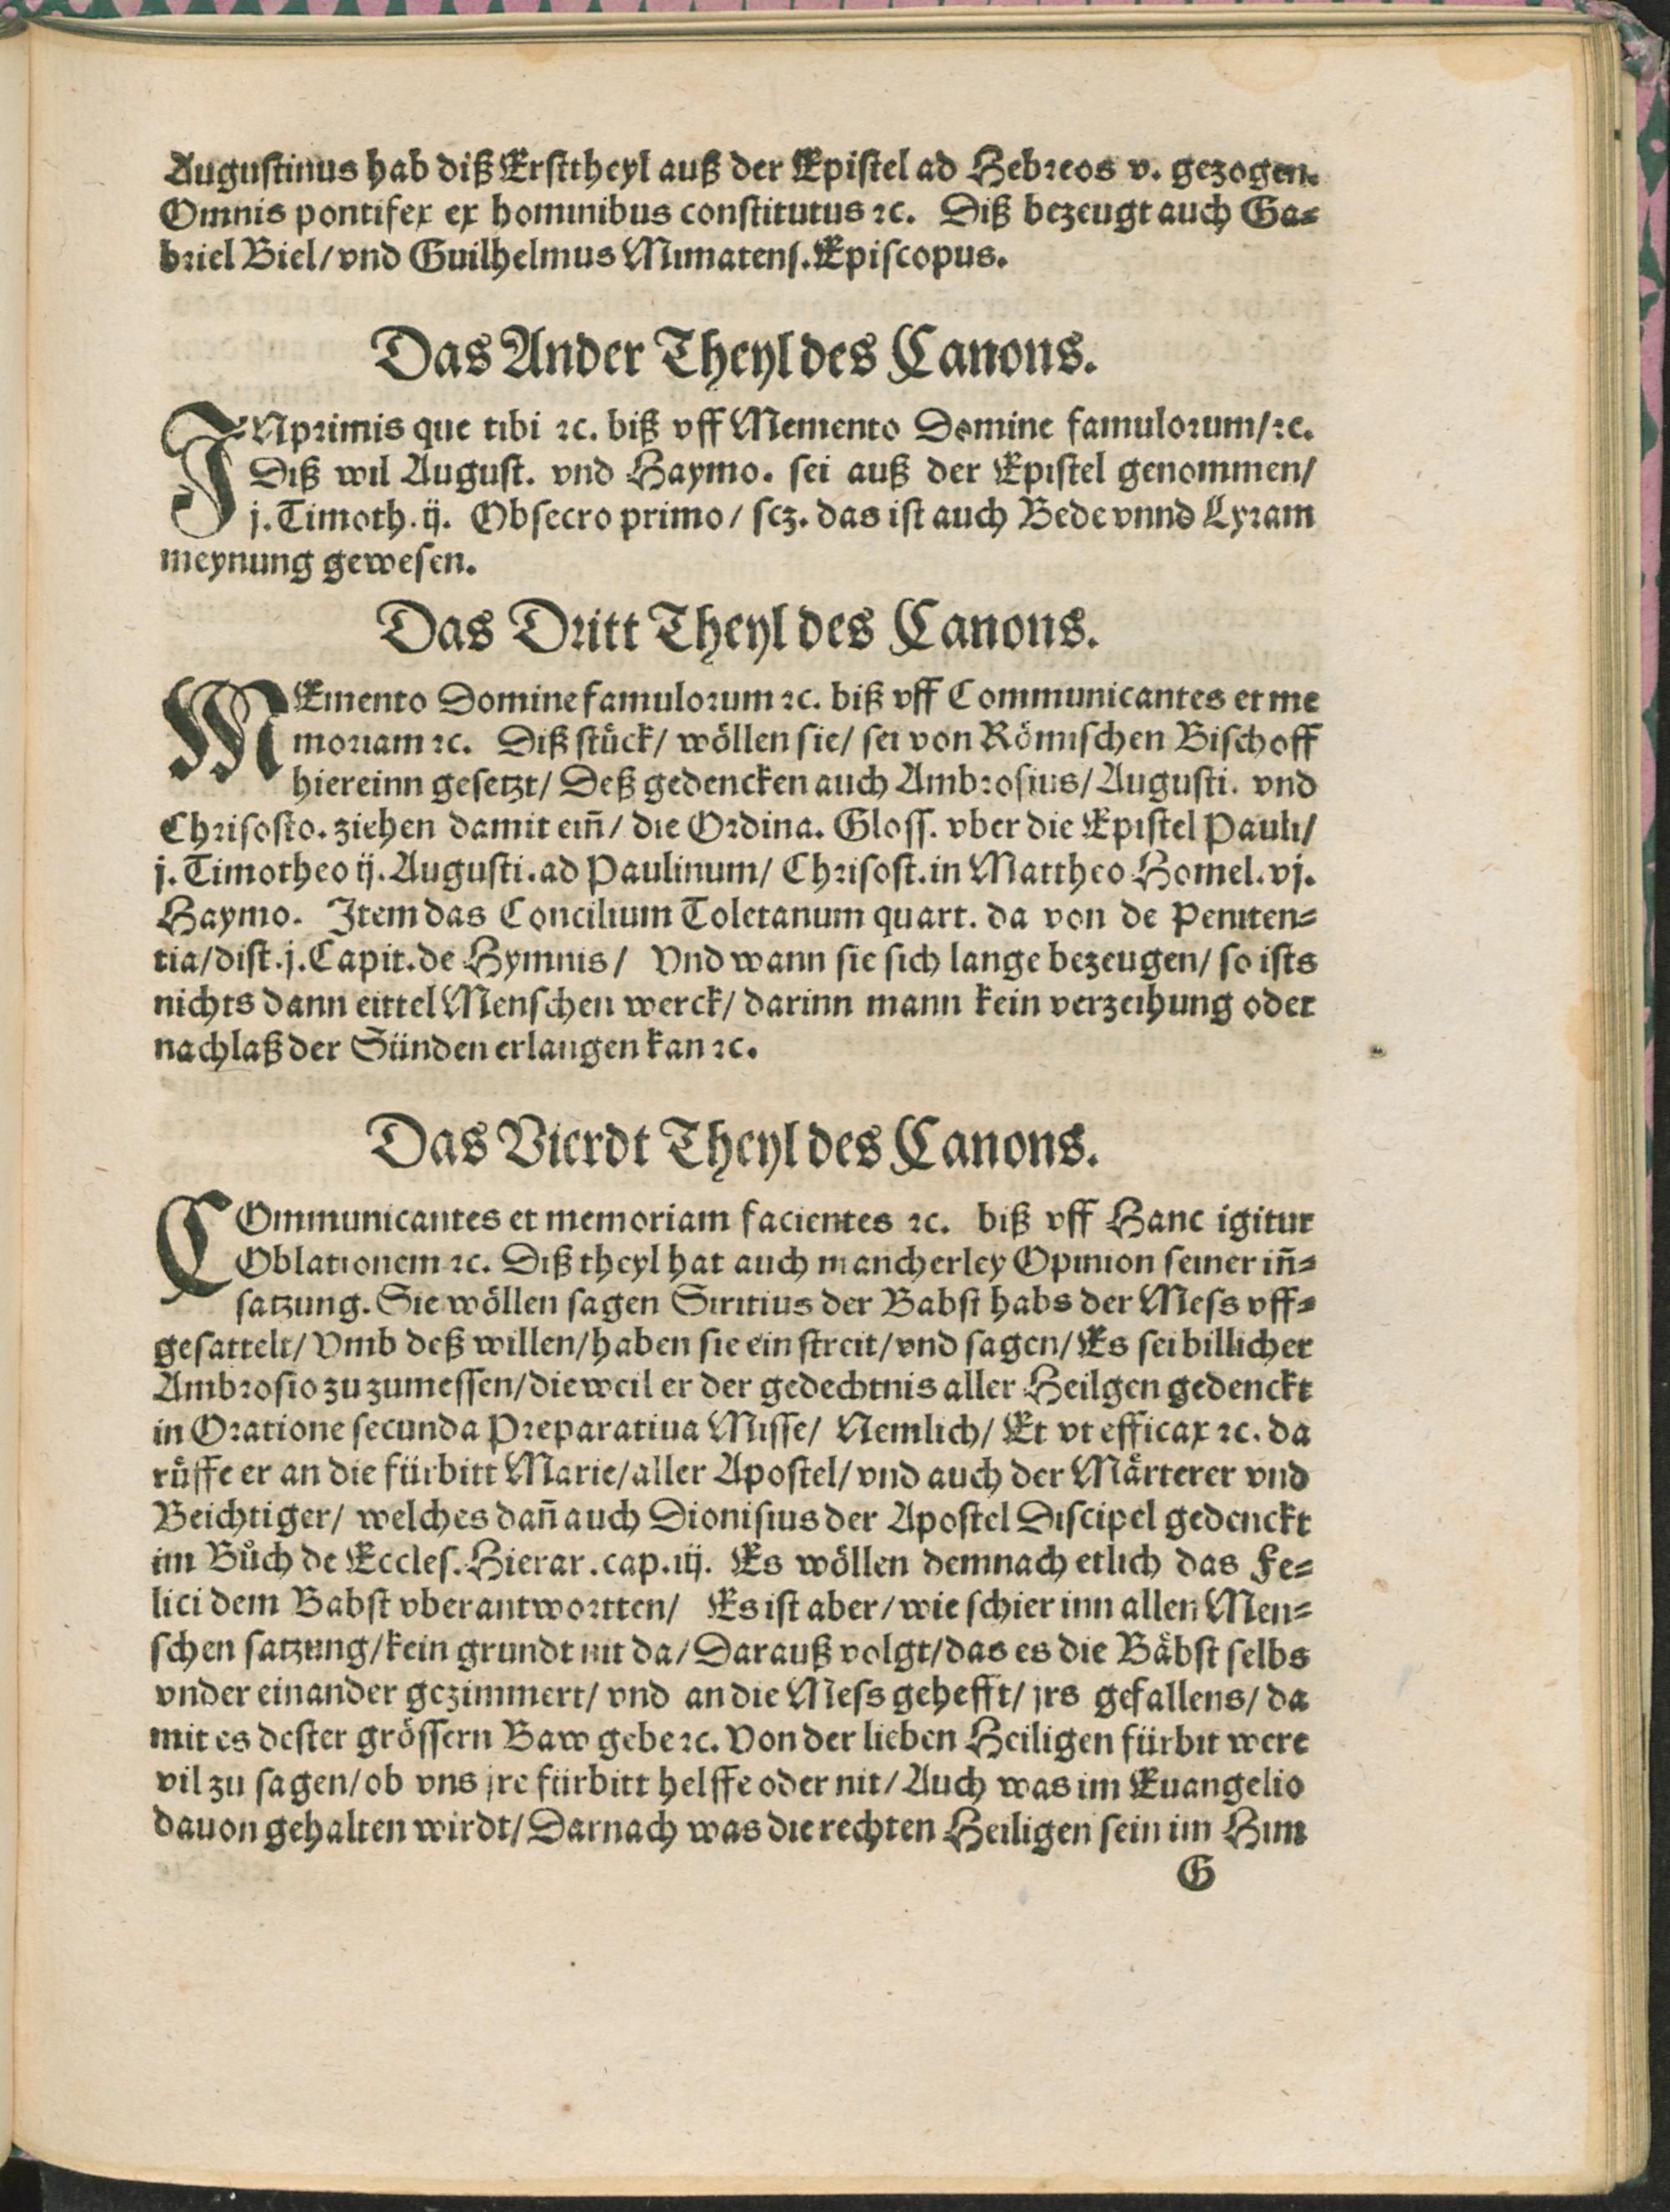 Augustinus hab diß Ersttheyl auß der Epistel ad Hebreos v. gezogen.
Omnis pontifex ex hominibus constitutus ꝛc. Diß bezeugt auch Ga⸗
briel Biel/ vnd Guilhelmus Mimatens. Episcopus.
Das Ander Theyl des Canons.
INprimis que tibi ꝛc. biß vff Memento Domine famulorum/ꝛc.
Diß wil August. vnd Haymo. sei auß der Epistel genommen/
j. Timoth. ij. Obsecro primo/ scz. das ist auch Bede vnnd Lyram
meynung gewesen.
Das Dritt Theyl des Canons.
MEmento Domine famulorum ꝛc. biß vff Communicantes et me
moriam ꝛc. Diß stück/ wöllen sie/ sei von Römischen Bischoff
hiereinn gesetzt/ Deß gedencken auch Ambrosius/ Augusti. vnd
Chrisosto. ziehen damit eiñ/ die Ordina. Gloss. vber die Epistel Pauli/
j. Timotheo ij. Augusti. ad Paulinum/ Chrisost. in Mattheo Homel. vj.
Haymo. Item das Concilium Toletanum quart. da von de Peniten⸗
tia/ dist. j. Capit. de Hymnis/ Vnd wann sie sich lange bezeugen/ so ists
nichts dann eittel Menschen werck/ darinn mann kein verzeihung oder
nachlaß der Sünden erlangen kan ꝛc.
Das Vierdt Theyl des Canons.
COmmunicantes et memoriam facientes ꝛc. biß vff Hanc igitur
Oblationem ꝛc. Diß theyl hat auch mancherley Opinion seiner iñ⸗
satzung. Sie wöllen sagen Siritius der Babst habs der Mess vff⸗
gesattelt/ Vmb deß willen/ haben sie ein streit/ vnd sagen/ Es sei billicher
Ambrosio zu zumessen/ die weil er der gedechtnis aller Heilgen gedenckt
in Oratione secunda Preparatiua Misse/ Nemlich/ Et vt efficax ꝛc. da
rüffe er an die fürbitt Marie/ aller Apostel/ vnd auch der Märterer vnd
Beichtiger/ welches dañ auch Dionisius der Apostel Discipel gedenckt
im Bůch de Eccles. Hierar. cap. iij. Es wöllen demnach etlich das Fe⸗
lici dem Babst vberantwortten/ Es ist aber/ wie schier inn allen Men⸗
schen satzung/ kein grundt nit da/ Darauß volgt/ das es die Bäbst selbs
vnder einander gezimmert/ vnd an die Mess gehefft/ jrs gefallens/ da
mit es dester grössern Baw gebe ꝛc. Von der lieben Heiligen fürbit were
vil zu sagen/ ob vns jre fürbitt helffe oder nit/ Auch was im Euangelio
dauon gehalten wirdt/ Darnach was die rechten Heiligen sein im Him
G